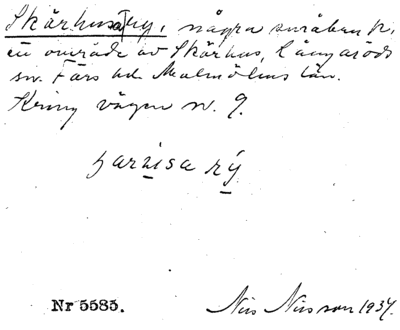 Skärhusa ry, några småbruk i
en område av Skärhus, Långaröds
sn. Färs hd Malmöhus län.
Kring vägen n. 9.
sarnisa rý
Nr 5585. Nils Nilsson 1937.